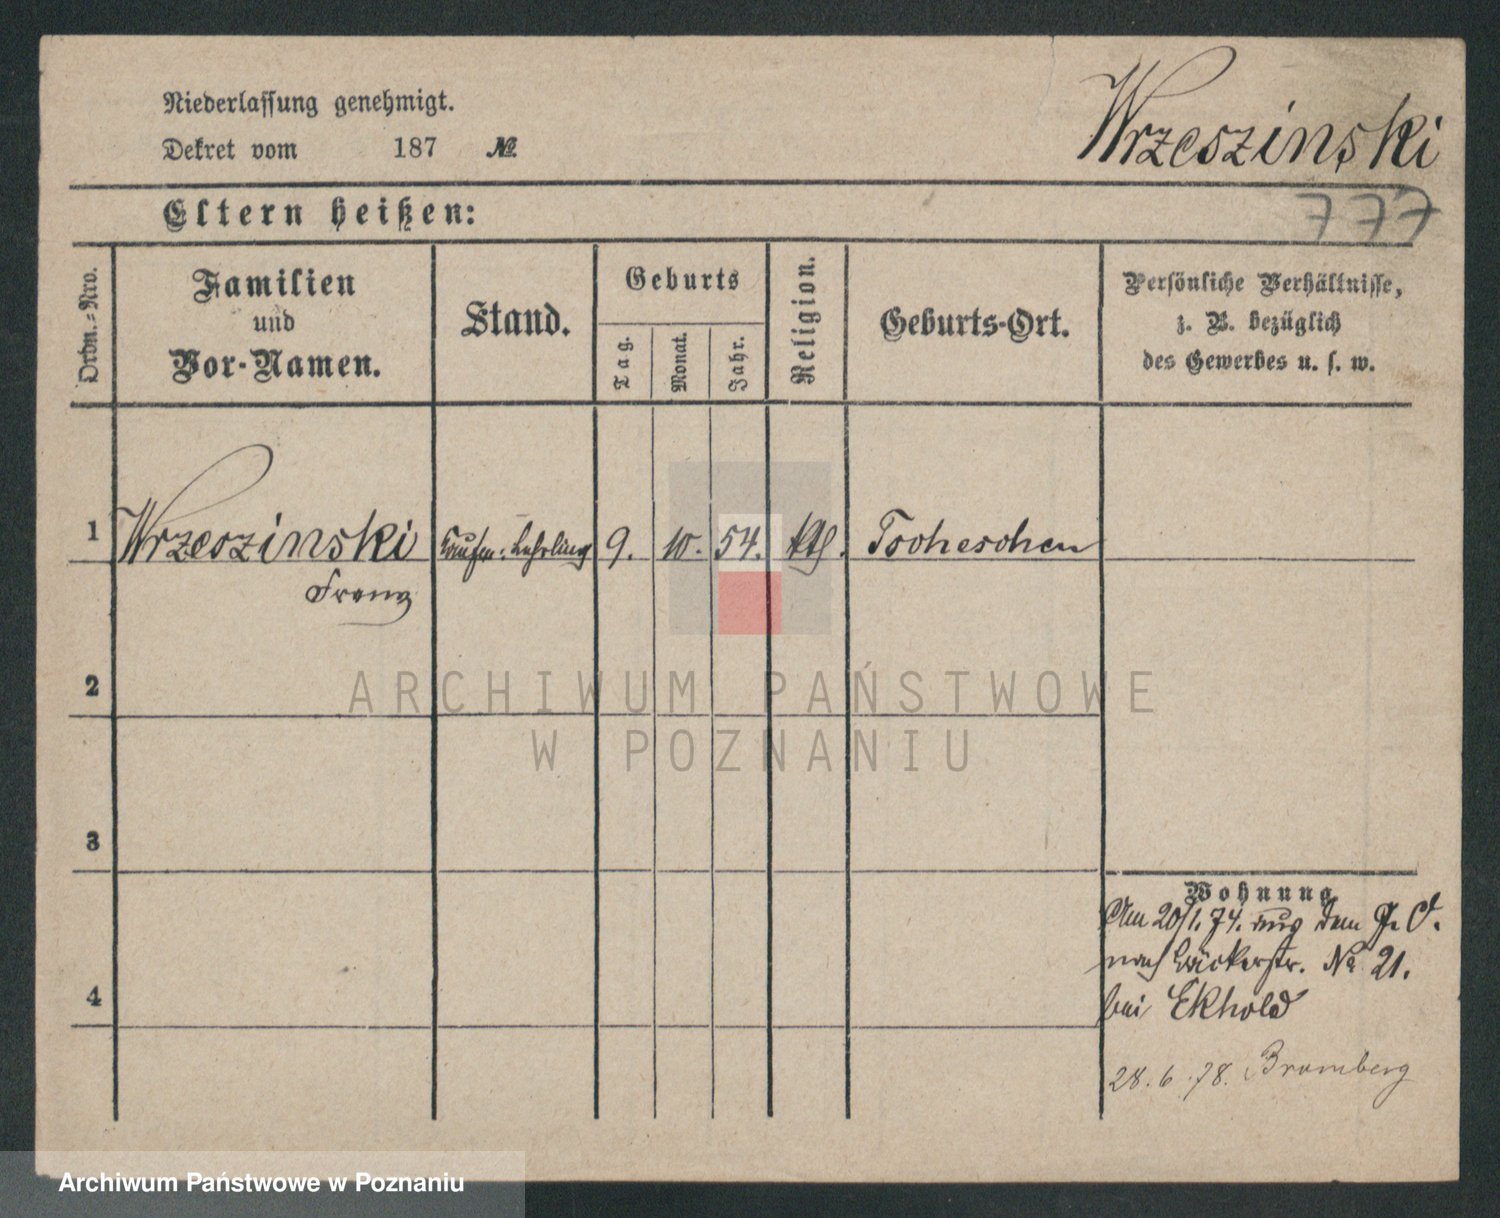 Niederlassung genehmigt.
Dekret vom 187 №
Wrzeszinski
777
Eltern heißen:
Ordn.-Nro.
Familien
und
Vor-Namen.
Stand.
Geburts
Tag.
Monat.
Jahr.
Religion.
Geburts-Ort.
Persönliche Verhältnisse,
z. B. bezüglich
des Gewerbes u. s. w.
1 Wrzeszinski Kaufm: Lehrling 9. 10. 54. kth. Tscheschen
Franz
2
ARCHIWUM PAŃSTWOWE
W POZNANIU
3
Wohnung
Am 20/1. 74. aus dem
nach Bäckerstr. No 21.
4
bei Ekhold
28. 6. 78. Bromberg
Archiwum Państwowe w Poznaniu